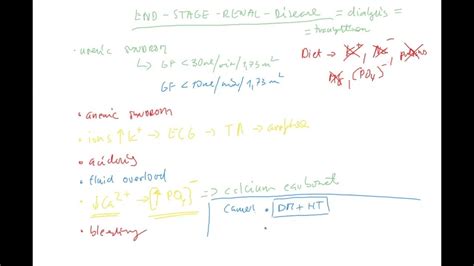 END-STAGE-RENAL-Disease = dialysis =
= transplantation
• uremic syndrom
↳ GF < 30ml/min/1,73m²
GF < 10ml/min/1,73m²
Diet →
(PO₄)⁻
• anemic syndrom
• ions ↑K⁺ → ECG → TA →
• acidosis
• fluid overload
• ↓Ca²⁺ → [↑PO₄⁻] => calcium carbonat
• bleeding
causes • DM + HT